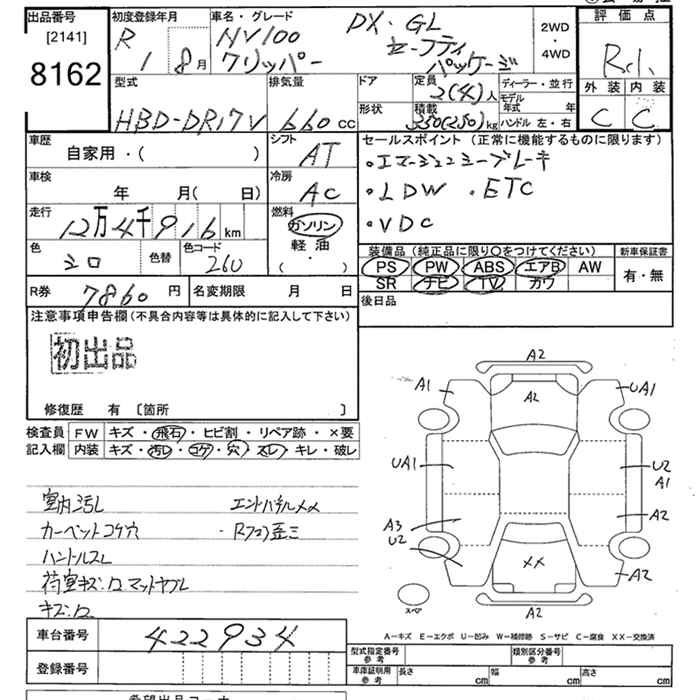 出品番号
[2141]
8162
初度登録年月
R 1 8月
車名・グレード
NV100
クリッパー
DX・GL
セーフティ
パッケージ
2WD
・
4WD
評価点
R
外装 内装
C C
型式
HBD-DR17V
排気量
660cc
ドア
形状
定員
2(4)人
積載
350(250)kg
ディーラー・並行
モデル年式 年
ハンドル 左・右
車歴
自家用・( )
シフト
AT
車検
年 月( 日)
冷房
AC
走行
12万4千916km
燃料
ガソリン
軽油
( ・ )
色
シロ
色替
色コード
260
R券 7860円
名変期限 月 日
セールスポイント(正常に機能するものに限ります)
・エマージェンシーブレーキ
・LDW ・ETC
・VDC
装備品(純正品に限り○をつけてください)
PS PW ABS エアB AW
SR ナビ TV カワ
新車保証書
有・無
後日品
注意事項申告欄(不具合内容等は具体的に記入して下さい)
初出品
修復歴 有〔箇所 〕
検査員 FW キズ・飛石・ヒビ割・リペア跡・×要
記入欄 内装 キズ・汚レ・コゲ・穴・スレ・キレ・破レ
室内汚レ エンドパネルメメ
カーペットコゲ穴 ・Rフロア歪ミ
ハンドルスレ
荷室キズ・凹 マットヤブレ
キズ・凹
A2
A1
A2
UA1
UA1
U2
A1
A3
U2
A2
XX
A2
A2
スペア
A-キズ E-エクボ U-凹み W-補修跡 S-サビ C-腐食 XX-交換済
車台番号 422934
登録番号
型式指定番号
参考
類別区分番号
参考
車庫証明用
参考
長さ cm
幅 cm
高さ cm
希望出品コーナー